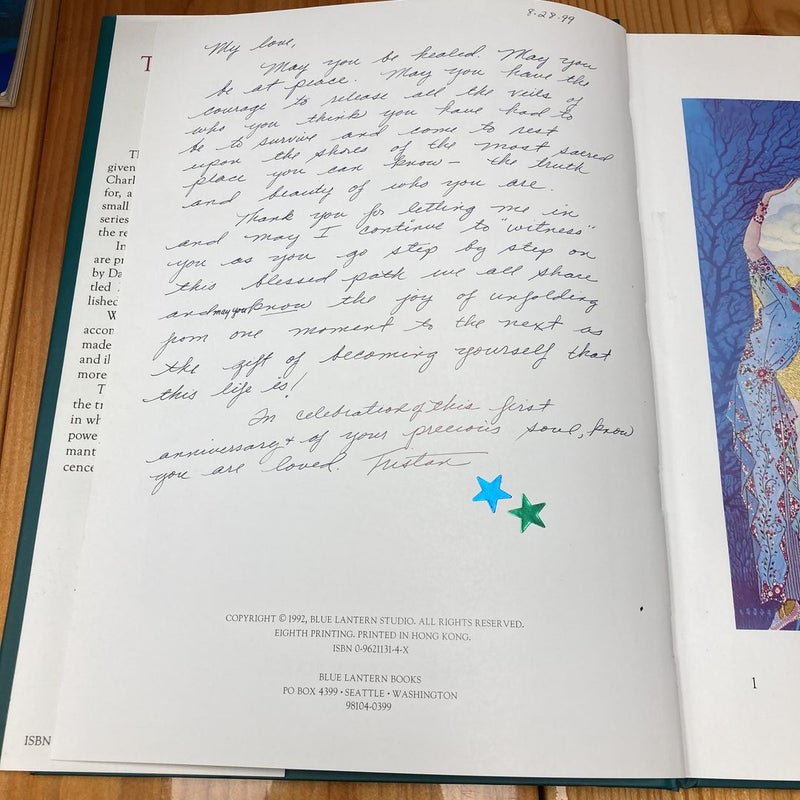 8-28-99
My love,
May you be healed. May you
be at peace. May you have the
courage to release all the veils of
who you think you have had to
be to survive and come to rest
upon the shores of the most sacred
place you can know — the truth
and beauty of who you are.
Thank you for letting me in
and may I continue to "witness"
you as you go step by step on
this blessed path we all share
and may you know the joy of unfolding
from one moment to the next as
the gift of becoming yourself that
this life is!
In celebration of this first
anniversary + of your precious soul, know
you are loved. Tristan
COPYRIGHT © 1992, BLUE LANTERN STUDIO. ALL RIGHTS RESERVED.
EIGHTH PRINTING. PRINTED IN HONG KONG.
ISBN 0-9621131-4-X
BLUE LANTERN BOOKS
PO BOX 4399 • SEATTLE • WASHINGTON
98104-0399
T
given
Charl
for, a
small
series
the re
In
are pr
by Da
tled
lished
W
accom
made
and il
more
T
the tr
in wh
powe
mant
cence
ISBN
1